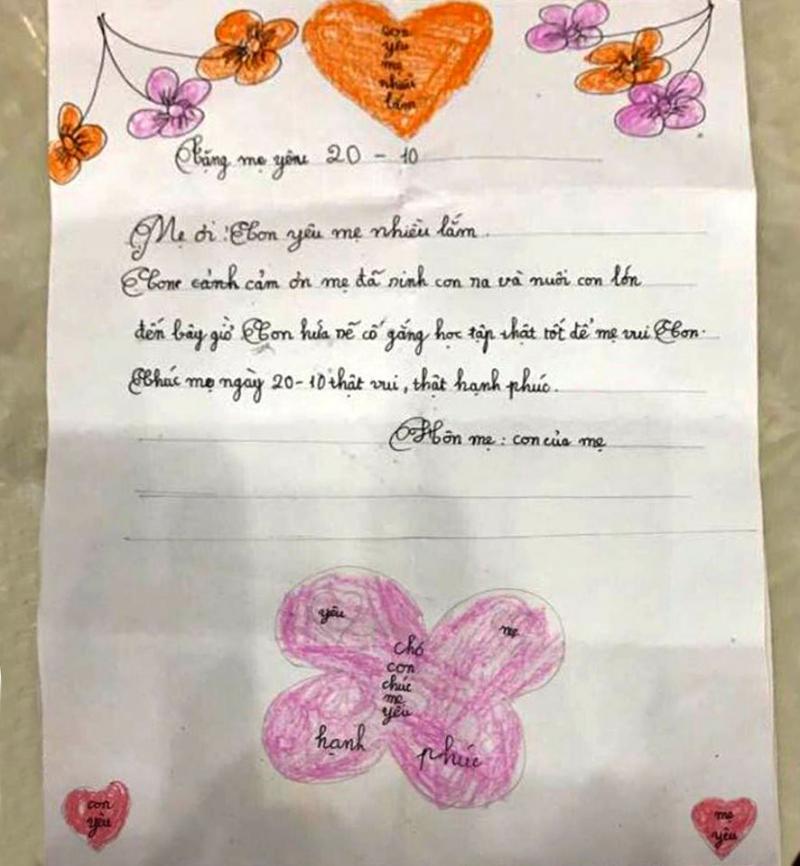 con
yêu
mẹ
nhiều
lắm
Tặng mẹ yêu 20 - 10
Mẹ ơi! Con yêu mẹ nhiều lắm.
Con cảnh cảm ơn mẹ đã sinh con ra và nuôi con lớn
đến bây giờ Con hứa sẽ cố gắng học tập thật tốt để mẹ vui Con.
Chúc mẹ ngày 20-10 thật vui, thật hạnh phúc.
Hôn mẹ: con của mẹ
yêu
mẹ
chó
con
chúc
mẹ
yêu
hạnh
phúc
con
yêu
mẹ
yêu